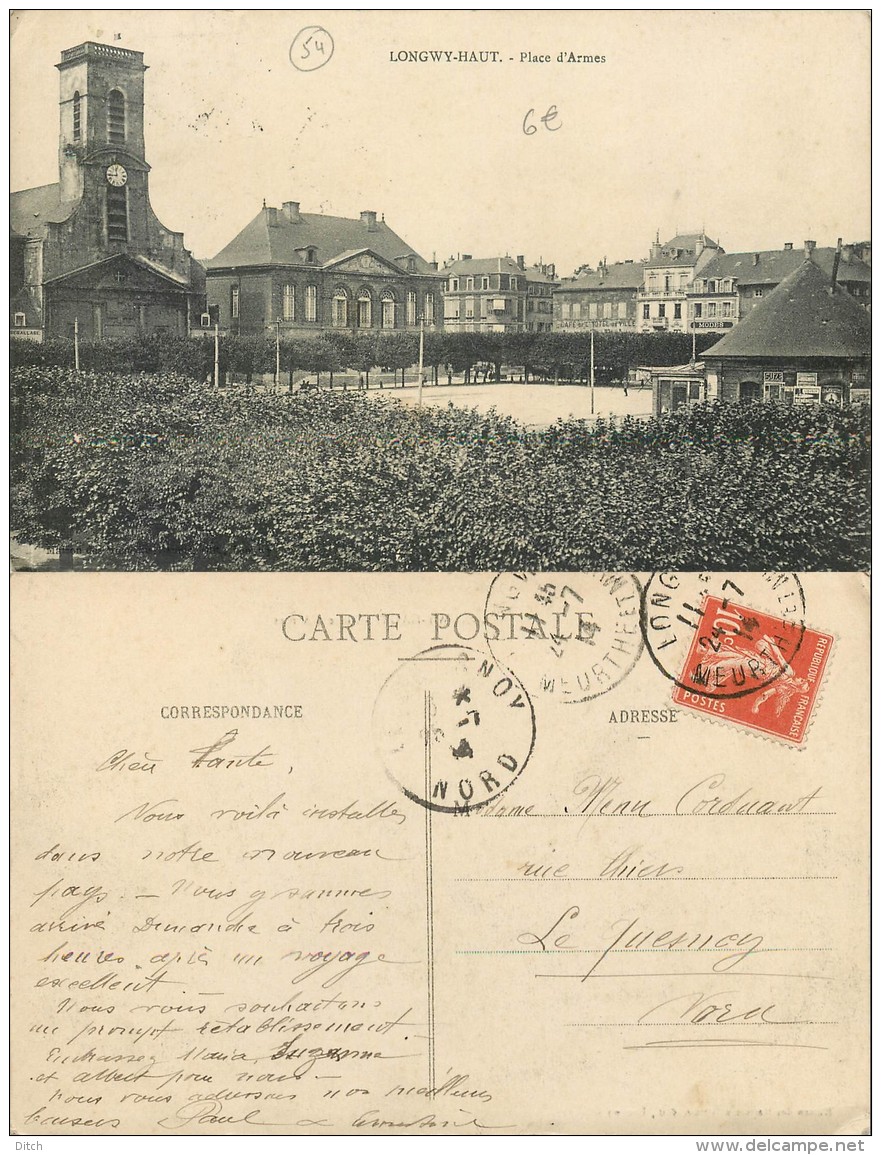 54
LONGWY-HAUT. - Place d'Armes
6€
CAFÉ DE L'HOTEL DE VILLE
MODES
CARTE POSTALE
LONGWY
11 45
24 -7
14
MEURTHE
LONG
11
24 -7
14
MEURTHE
RÉPUBLIQUE FRANÇAISE
10c
POSTES
NOY
-7
14
NORD
CORRESPONDANCE
ADRESSE
Chère Tante,
Nous voilà installés
dans notre nouveau
pays. - Nous y sommes
arrivé Dimanche à trois
heures après un voyage
excellent.
Nous vous souhaitons
un prompt rétablissement
Embrassez Maria, Suzanne
et Albert pour nous -
Nous vous adressons nos meilleurs
baisers Paul &
Madame Menu Corduant
rue Thiers
Le Quesnoy
Nord
Ditch
www.delcampe.net